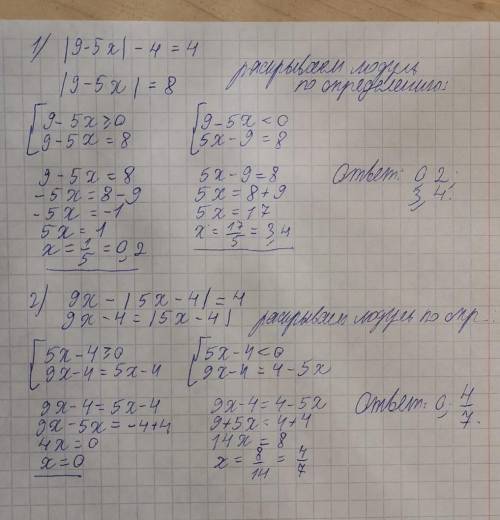 1) |9-5x| - 4 = 4
|9-5x| = 8
раскрываем модуль
по определению:
9-5x ≥ 0
9-5x = 8
9-5x < 0
5x-9 = 8
9-5x = 8
-5x = 8-9
-5x = -1
5x = 1
x = 1/5 = 0,2
5x-9 = 8
5x = 8+9
5x = 17
x = 17/5 = 3,4
Ответ: 0,2;
3,4.
2) 9x - |5x-4| = 4
9x-4 = |5x-4|
раскрываем модуль по опр.
5x-4 ≥ 0
9x-4 = 5x-4
5x-4 < 0
9x-4 = 4-5x
9x-4 = 5x-4
9x-5x = -4+4
4x = 0
x = 0
9x-4 = 4-5x
9+5x = 4+4
14x = 8
x = 8/14 = 4/7
Ответ: 0, 4/7.